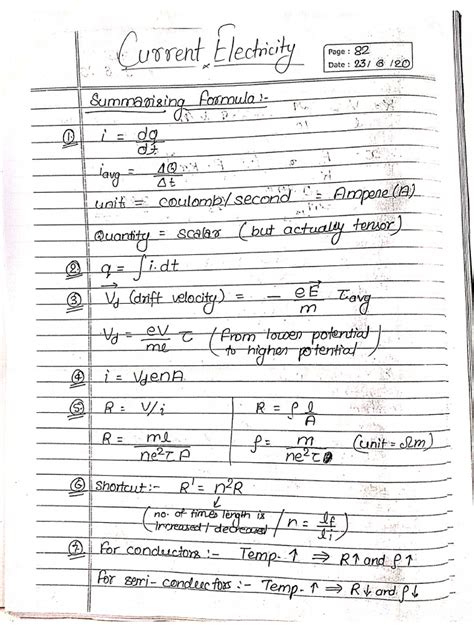 Current Electricity
Page : 82
Date : 23/8/20
Summarizing Formula :-
① i = dq/dt
i_avg = ΔQ/Δt
unit = coulomb/second = Ampere (A)
Quantity = scalar (but actually tensor)
② q = ∫i.dt
③ V⃗_d (drift velocity) = - eE⃗/m τ_avg
V_d = eV/ml τ (From lower potential to higher potential)
④ i = V_d enA
⑤ R = V/i | R = ρ l/A
R = ml/ne²τA | ρ = m/ne²τ (unit = Ωm)
⑥ Shortcut :- R' = n²R
↓
(no. of times length is increased/decreased / n = l_f/l_i)
⑦ For conductors :- Temp. ↑ ⇒ R↑ and ρ↑
For semi-conductors :- Temp. ↑ ⇒ R↓ and ρ↓